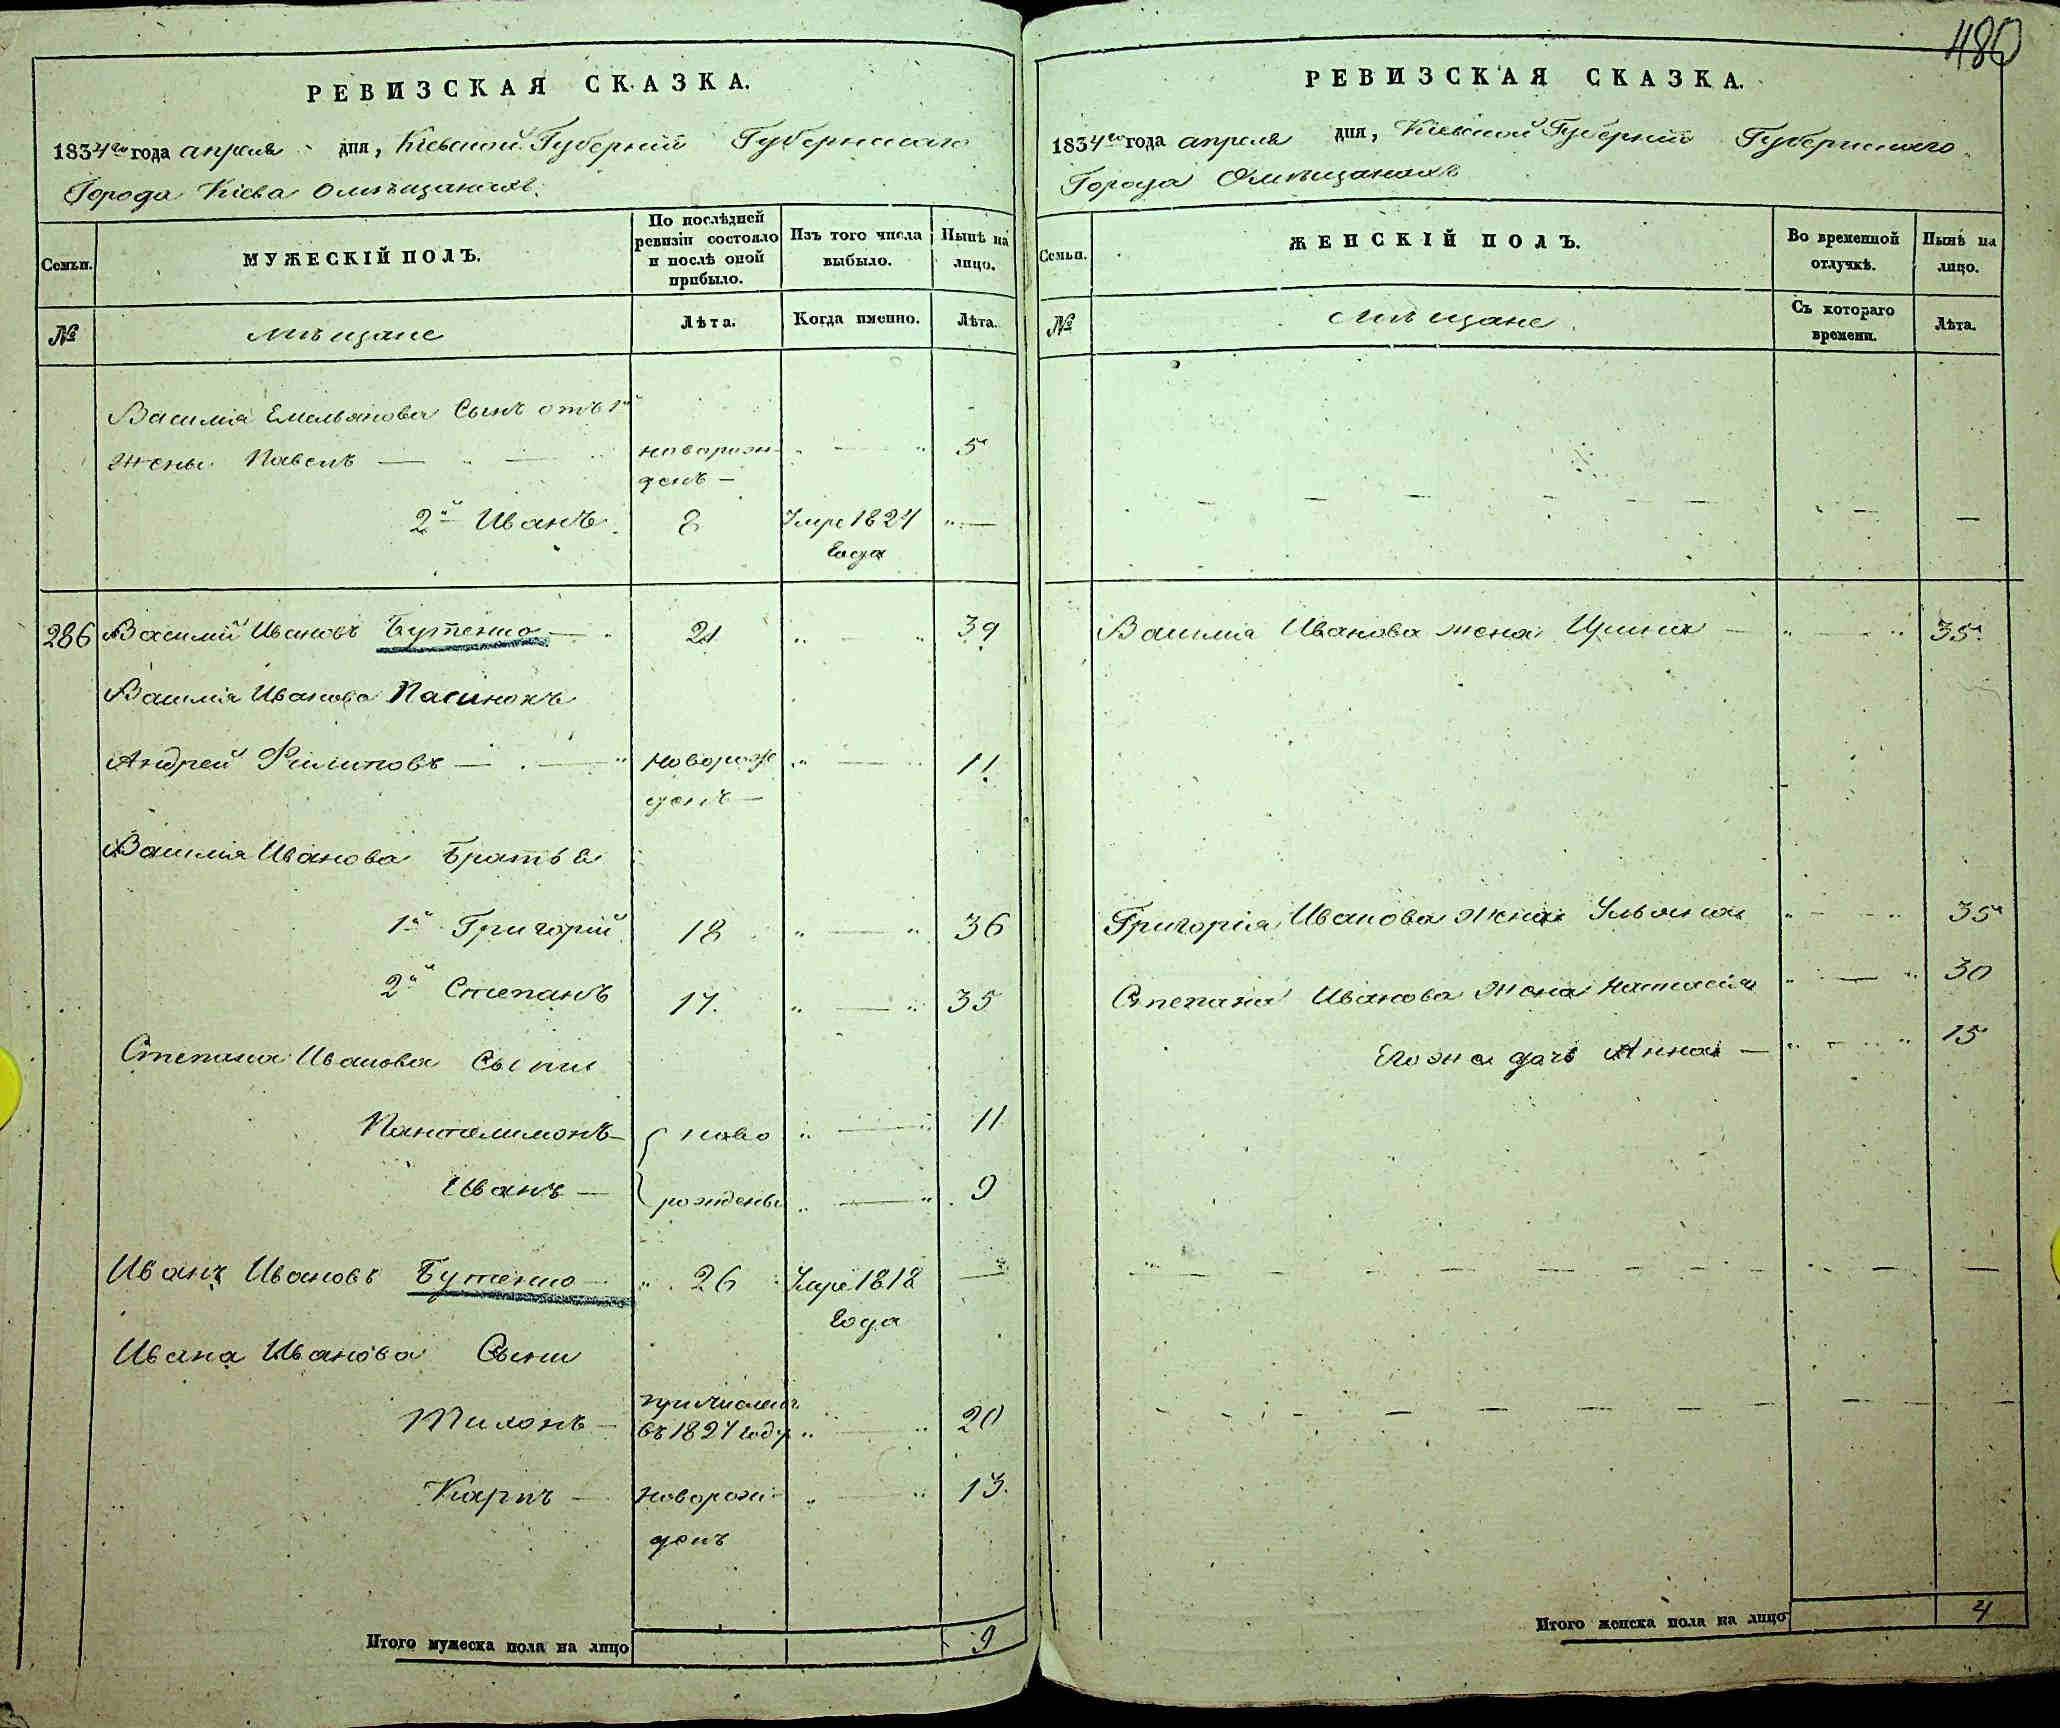 480
РЕВИЗСКАЯ СКАЗКА.
1834го года апреля дня, Кіевской Губерніи Губернскаго
Города Кіева о мѣщанахъ.
Семьи.
МУЖЕСКІЙ ПОЛЪ.
По послѣдней ревизіи состояло и послѣ оной прибыло.
Изъ того числа выбыло.
Нынѣ на лицо.
№
мѣщане
Лѣта.
Когда именно.
Лѣта.
Василія Емельянова Сынъ отъ 1й
Жены Павелъ — новорож- 5
денъ —
2й Иванъ 8 Умре 1824 —
Года
286 Василій Ивановъ Бутенко — 21 — 39
Василія Иванова Пасинокъ
Андрей Филиповъ — новорож — 11
денъ —
Василія Иванова Братья
1й Григорій 18 — 36
2й Степанъ 17 — 35
Степана Иванова Сыни
Панталимонъ — ново — 11
Иванъ — рождены — 9
Иванъ Ивановъ Бутенко — 26 Умре 1818 —
Года
Ивана Иванова Сыни
причисленъ
Тихонъ — въ 1827 году — 20
Карпъ — новорож- — 13
денъ
Итого мужеска пола на лицо 9
РЕВИЗСКАЯ СКАЗКА.
1834го года апреля дня, Кіевской Губерніи Губернскаго
Города О мѣщанахъ
Семьи.
ЖЕНСКІЙ ПОЛЪ.
Во временной отлучкѣ.
Нынѣ на лицо.
№
Мѣщане
Съ котораго времени.
Лѣта.
Василія Иванова жена Ирина — 35
Григорія Иванова жена Ульяна — 35
Степана Иванова жена Настасія — 30
Его же дочь Анна — 15
Итого женска пола на лицо 4